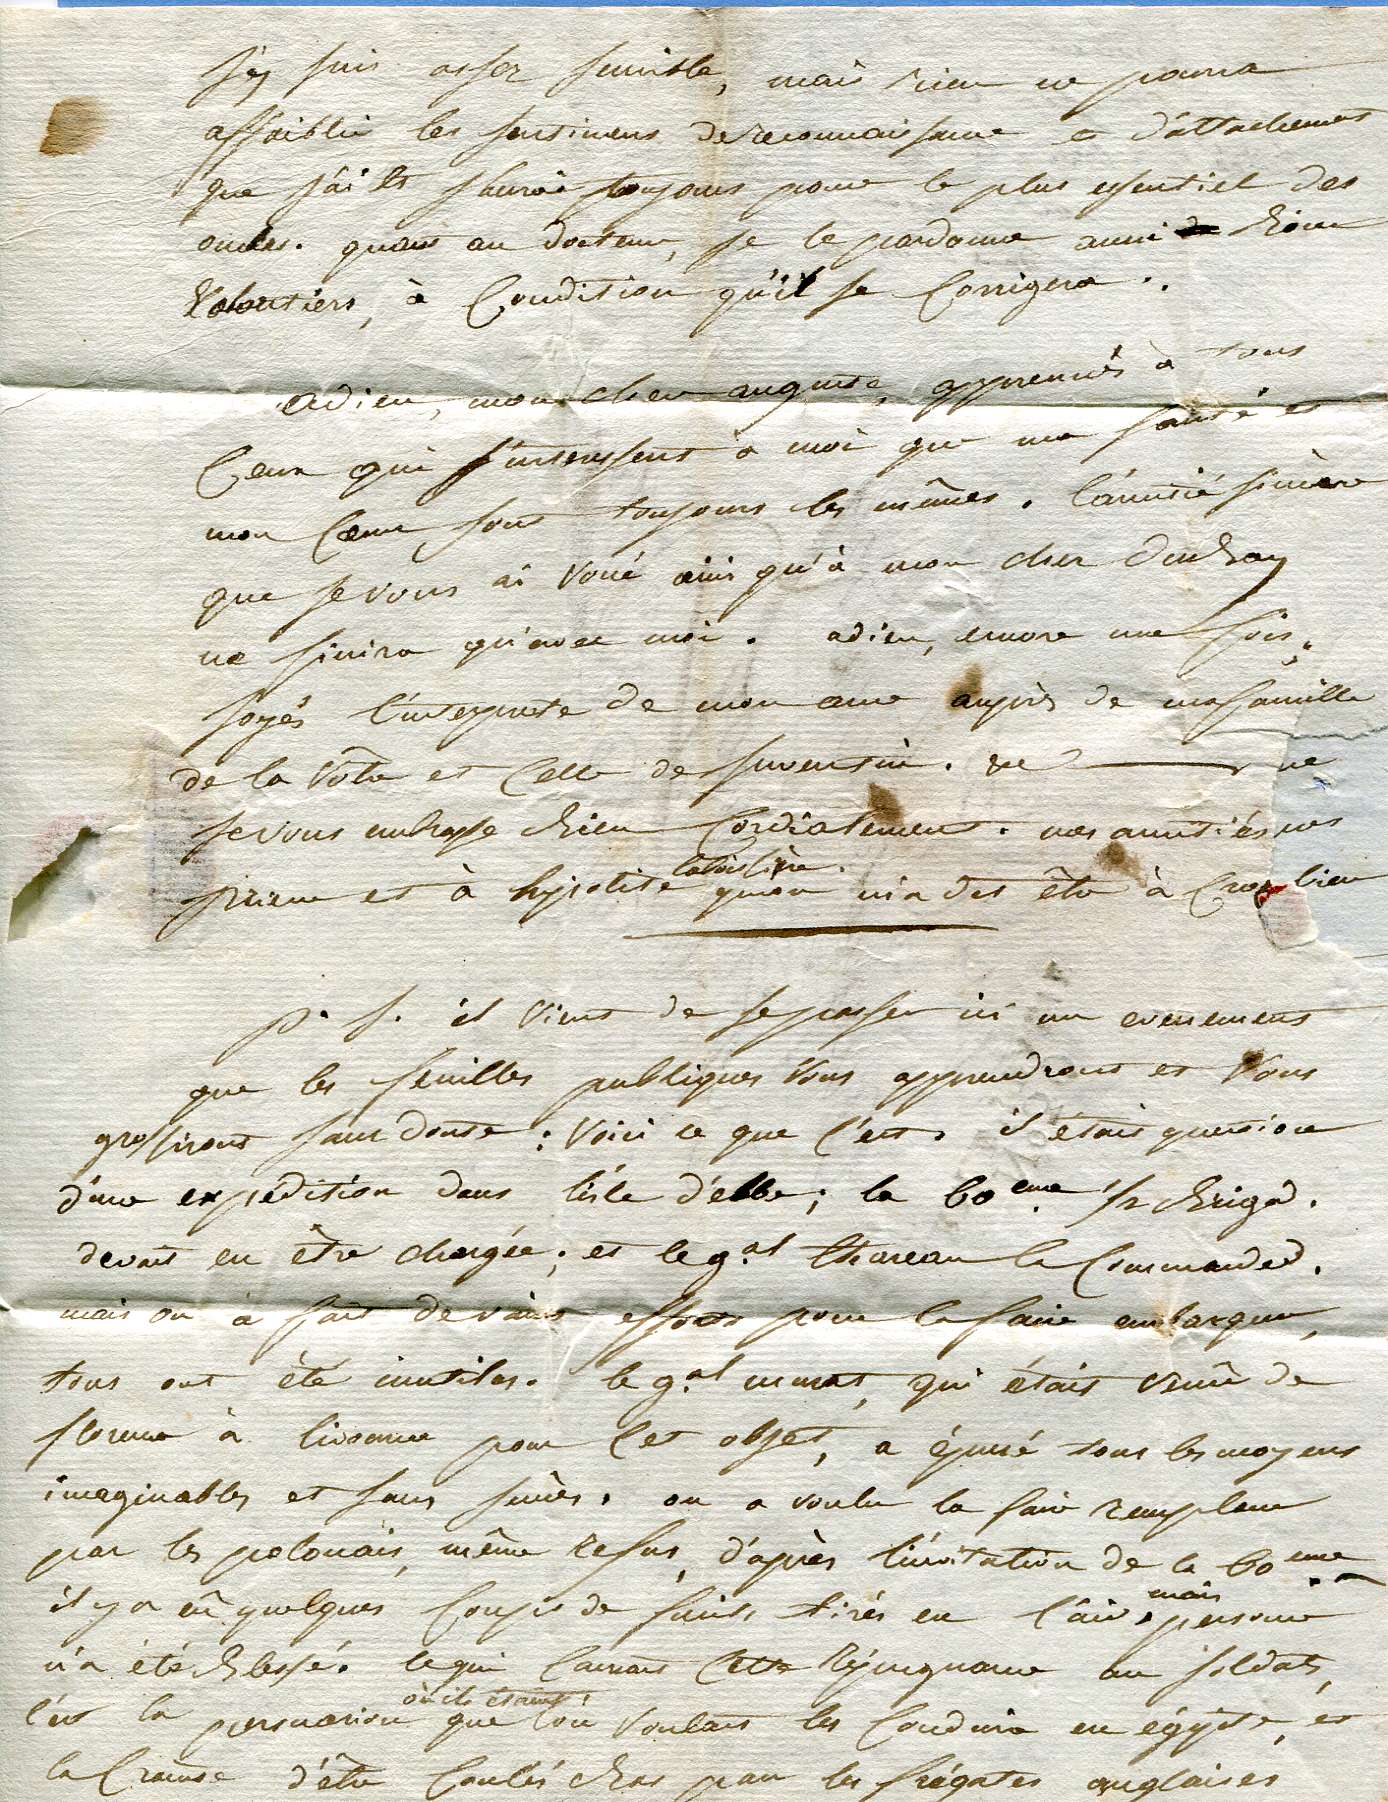 j'y suis assez sensible, mais rien ne pourra
affaiblir les sentimens de reconnaissance et d'attachement
que j'ai et j'aurai toujours pour le plus essentiel des
oncles. quant au docteur, je le pardonne aussi bien
Volontiers, à Condition qu'il se Corrigera.
adieu, mon cher auguste, apprenés à tous
Ceux qui s'interessent à moi que ma santé et
mon Coeur sont toujours les mêmes. l'amitié sincère
que je vous ai Voué ainsi qu'à mon cher
ne finira qu'avec moi. adieu, encore une fois,
soyés l'interprete de mon ame auprès de ma famille
de la Vôtre et Celle de
je vous embrasse bien Cordialement. mes amitiés
et à hypolite qu'on m'a dit être à
p. s. il Vient de se passer ici un evenement
que les feuilles publiques Vous apprendront et Vous
grossiront sans doute: Voici ce que C'est. il était question
d'une expédition dans l'isle d'elbe; la 60.eme 1/2 brigad.
devait en être chargée; et le g.al thareau la Commander.
mais on à fait de vains efforts pour la faire embarquer,
tous ont été inutiles. le g.al murat, qui était Venû de
florence à livourne pour Cet objet, a épuisé tous les moyens
imaginables et sans succès. on a voulu la faire remplacer
par les polonais, même refus, d'après l'invitation de la 60.eme
il y a eû quelques Coups de fusils tirés en l'air, mais personne
n'a été blessé. Ce qui Causait Cette répugnance au soldat,
C'est la persuasion où ils étaient que l'on Voulait les Conduire en égypte, et
la Crainte d'être Coulés bas par les frégates anglaises